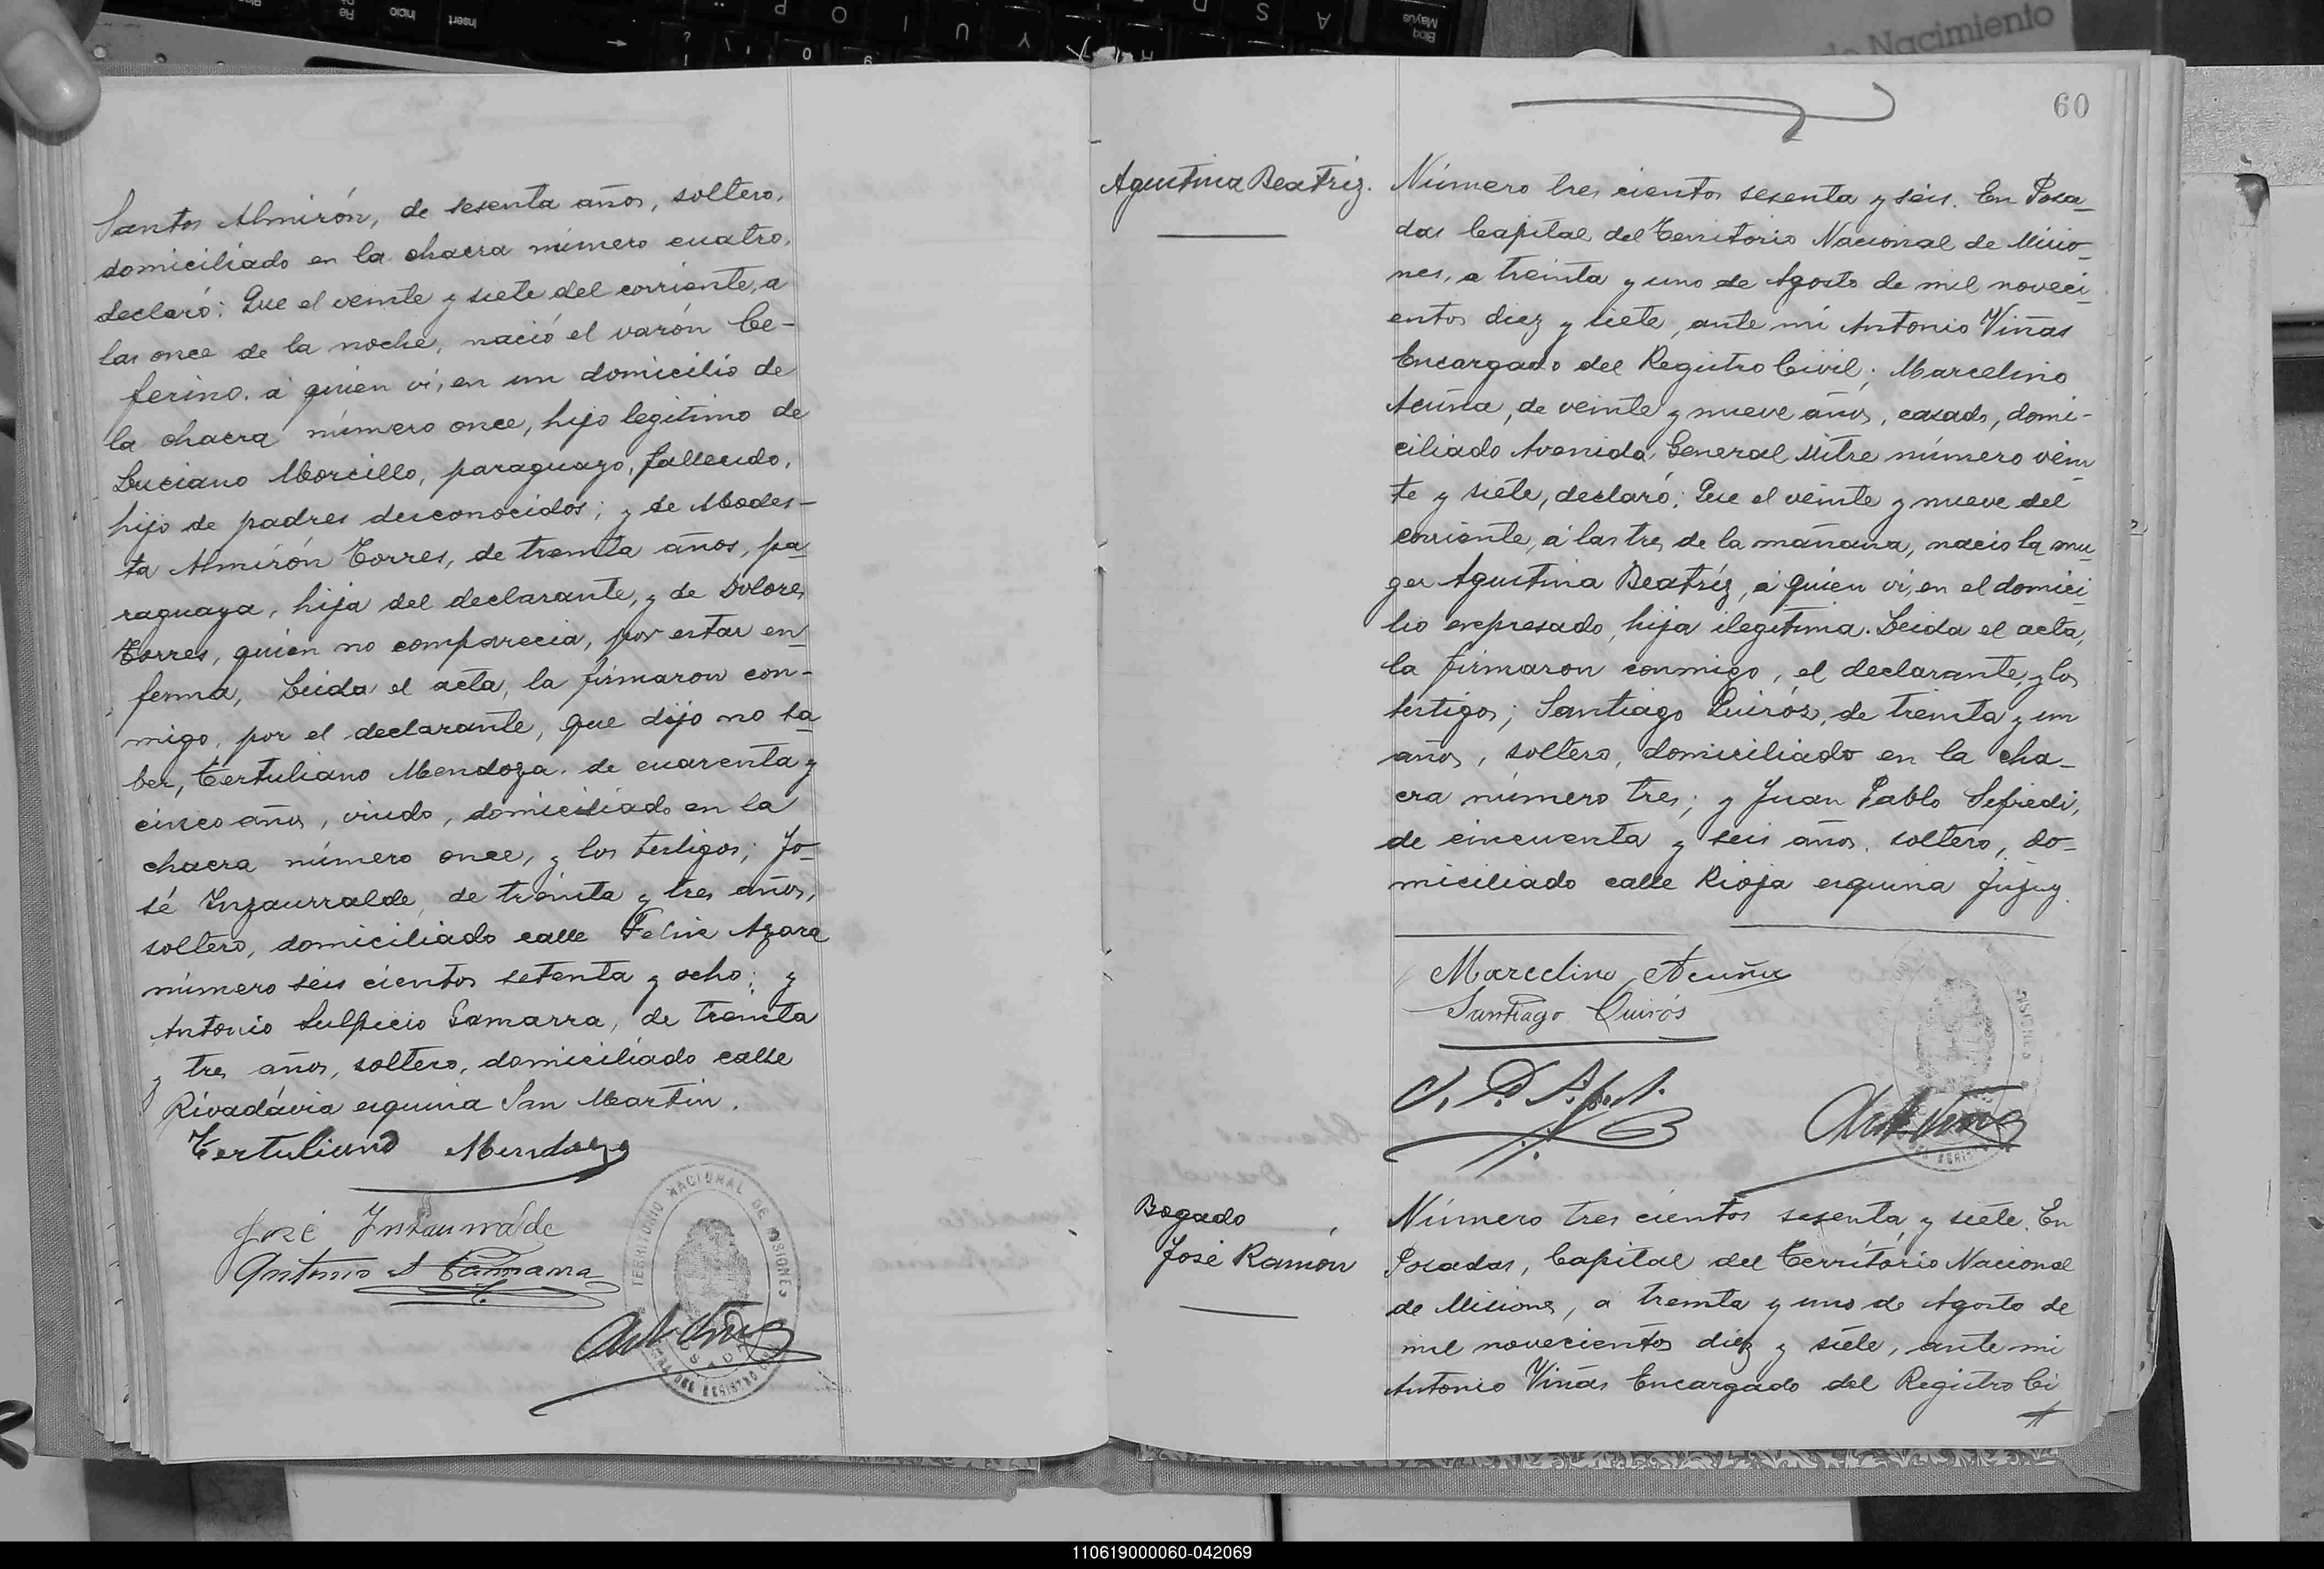 Santos Almirón, de sesenta años, soltero,
domiciliado en la chacra número cuatro,
declaró: Que el veinte y siete del corriente, a
las once de la noche, nació el varón Ce-
ferino, á quien vi, en un domicilio de
la chacra número once, hijo legitimo de
Luciano Morcillo, paraguayo, fallecido,
hijo de padres desconocidos; y de Modes-
ta Almirón Torres, de treinta años, pa-
raguaya, hija del declarante, y de Dolores
Torres, quien no comparecia, por estar en-
ferma, Leida el acta, la firmaron con-
migo, por el declarante, que dijo no sa-
ber, Tertuliano Mendoza, de cuarenta y
cinco años, viudo, domiciliado en la
chacra número once, y los testigos; Jo-
sé Inzaurralde, de treinta y tres años,
soltero, domiciliado calle Felix Azara
número seis cientos setenta y ocho; y
Antonio Sulpicio Gamarra, de treinta
y tres años, soltero, domiciliado calle
Rivadávia esquina San Martin.
Tertuliano Mendoza
José Insaurrálde
Antonio S Gamarra
TERRITORIO NACIONAL DE MISIONES
POSADAS
DEL REGISTRO CIVIL
60
de Nacimiento
Agustina Beatriz.
Número tres cientos sesenta y seis. En Posa-
das Capital del Territorio Nacional de Misio-
nes, a treinta y uno de Agosto de mil noveci-
entos diez y siete, ante mi Antonio Viñas
Encargado del Registro Civil; Marcelino
Acuña, de veinte y nueve años, casado, domi-
ciliado Avenida General Mitre número vein
te y siete, declaró: Que el veinte y nueve del
corriente, á las tres de la mañana, nacio la mu-
ger Agustina Beatríz, á quien vi, en el domici-
lio expresado, hija ilegitima. Leida el acta,
la firmaron conmigo, el declarante, y los
testigos; Santiago Quirós, de treinta y un
años, soltero, domiciliado en la cha-
cra número tres; y Juan Pablo Sefredi,
de cincuenta y seis años, soltero, do-
miciliado calle Rioja esquina Jujuy.
Marcelino Acuña
Santiago Quirós
Bogado
José Ramón
Número tres cientos sesenta y siete. En
Posadas, Capital del Territorio Nacional
de Misiones, a treinta y uno de Agosto de
mil novecientos diez y siete, ante mi
Antonio Viñas Encargado del Registro Ci
110619000060-042069